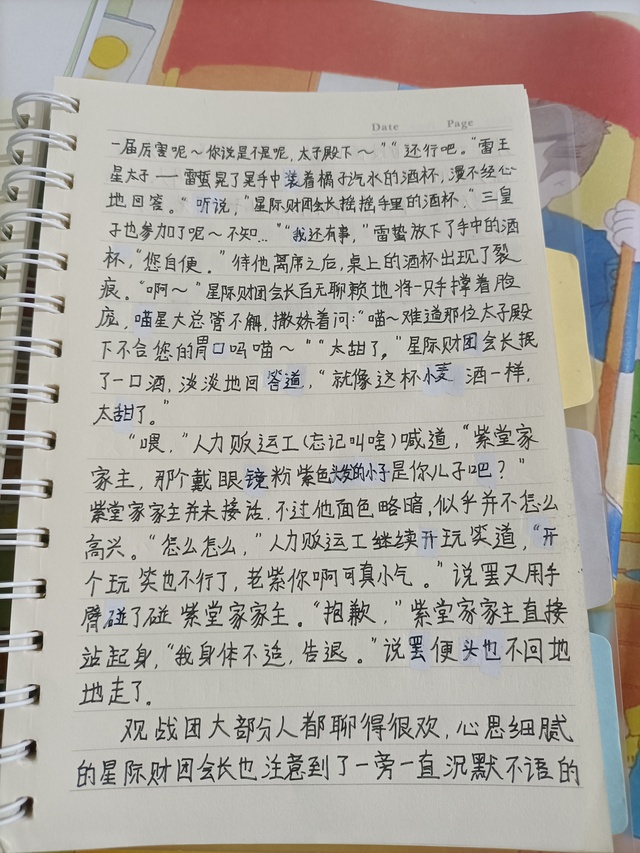 Date Page
一届厉害呢～你说是不是呢，太子殿下～”“还行吧。”雷王
星太子——雷蛰晃了晃手中装着橘子汽水的酒杯，漫不经心
地回答。“听说，”星际财团会长摇摇手里的酒杯，“三皇
子也参加了呢～不知…”“我还有事，”雷蛰放下了手中的酒
杯，“您自便。”待他离席之后，桌上的酒杯出现了裂
痕。“啊～”星际财团会长百无聊赖地将一只手撑着脸
庞，喵星大总管不解，撒娇着问：“喵～难道那位太子殿
下不合您的胃口吗喵～”“太甜了。”星际财团会长抿
了一口酒，淡淡地回答道，“就像这杯小麦酒一样，
太甜了。”
“喂，”人力贩运工（忘记叫啥）喊道，“紫堂家
家主，那个戴眼镜粉紫色头发的小子是你儿子吧？”
紫堂家家主并未接话，不过他面色略暗，似乎并不怎么
高兴。“怎么怎么，”人力贩运工继续开玩笑道，“开
个玩笑也不行了，老紫你啊可真小气。”说罢又用手
臂碰了碰紫堂家家主。“抱歉，”紫堂家家主直接
站起身，“我身体不适，告退。”说罢便头也不回地
地走了。
观战团大部分人都聊得很欢，心思细腻
的星际财团会长也注意到了一旁一直沉默不语的